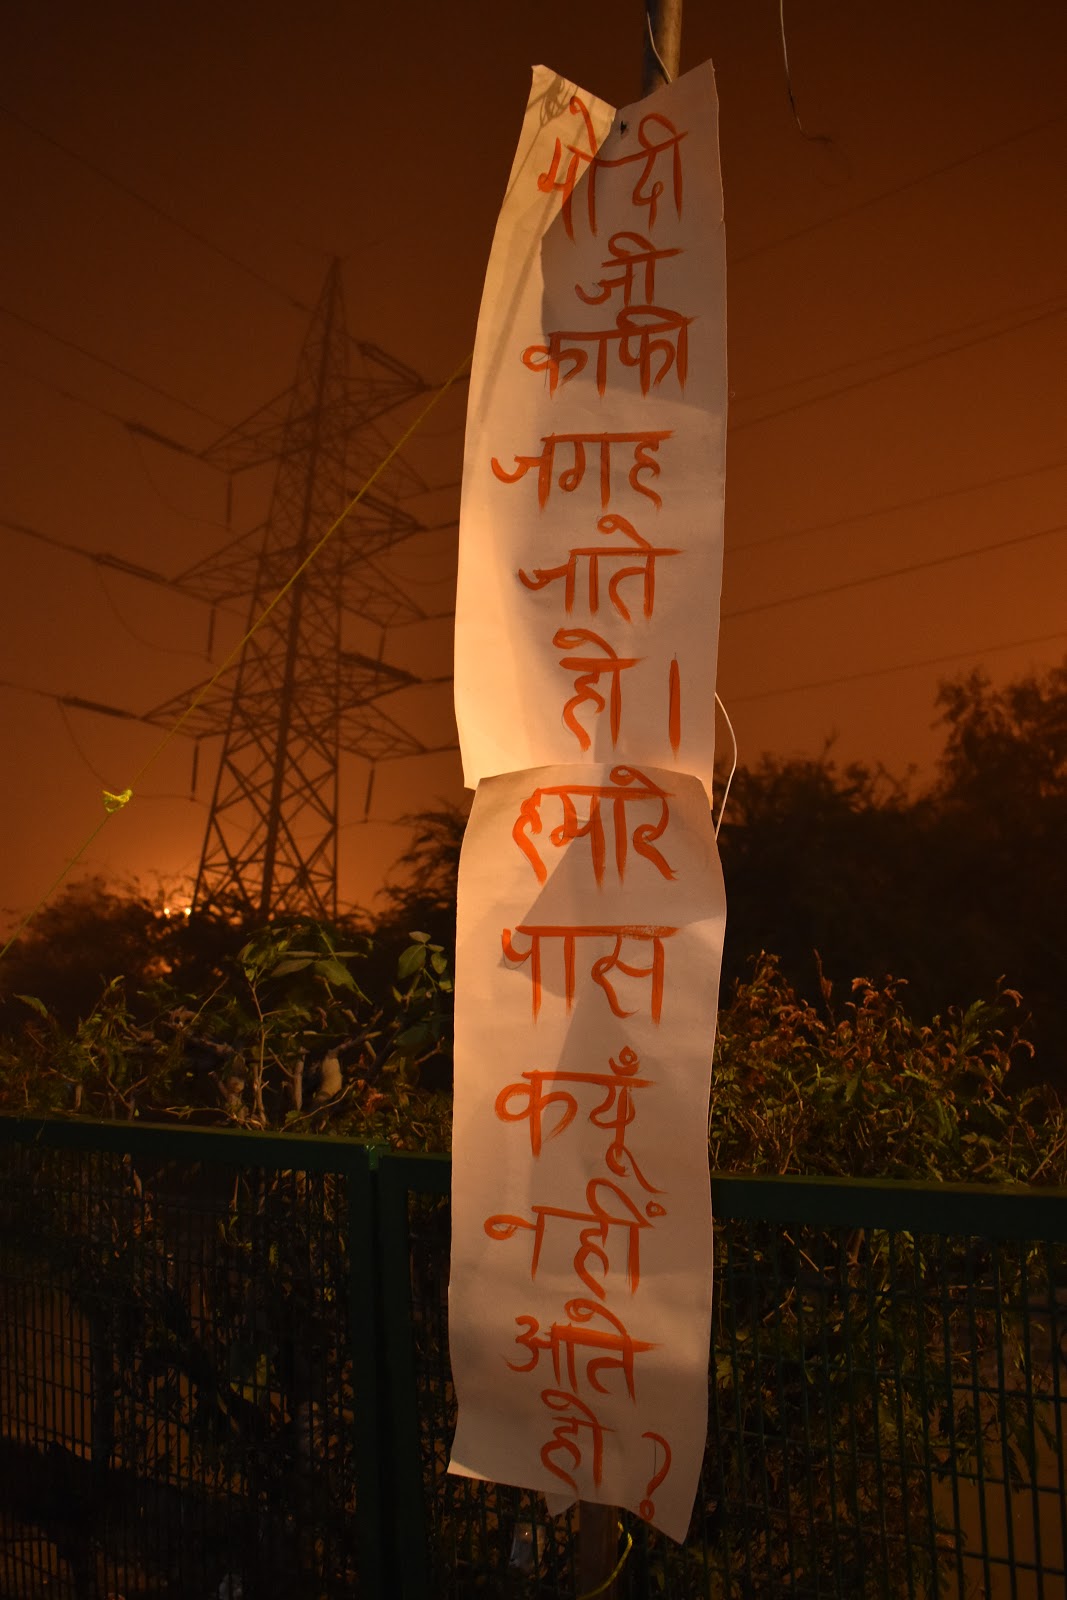 मोदी
जी
काफी
जगह
जाते
हो ।
हमारे
पास
कयूँ
नहीं
आते
हो ?